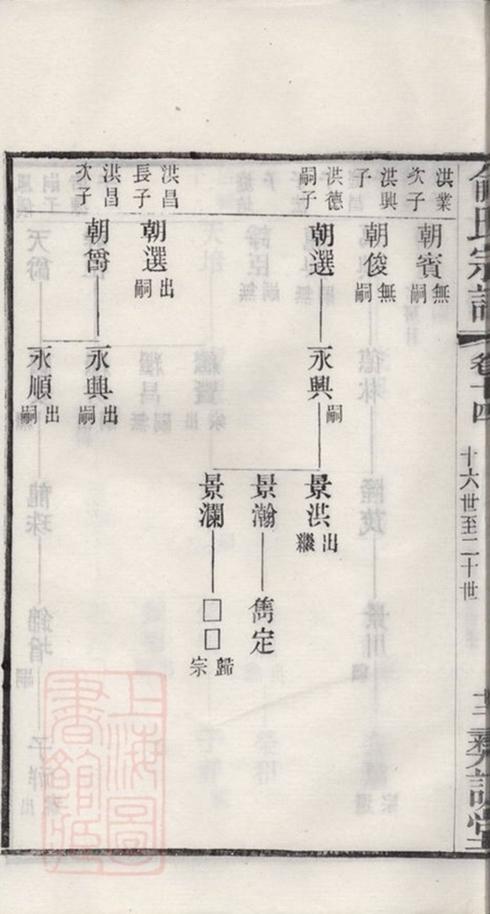 俞氏宗譜
卷十四
十六世至二十世
洪業次子
朝賓無嗣
洪興子
朝俊無嗣
洪德嗣子
朝選
永興嗣
景洪出繼
景瀚
雋定
景瀾
□□歸宗
洪昌長子
朝選出嗣
洪昌次子
朝爵
永興出嗣
永順出嗣
上海圖書館藏